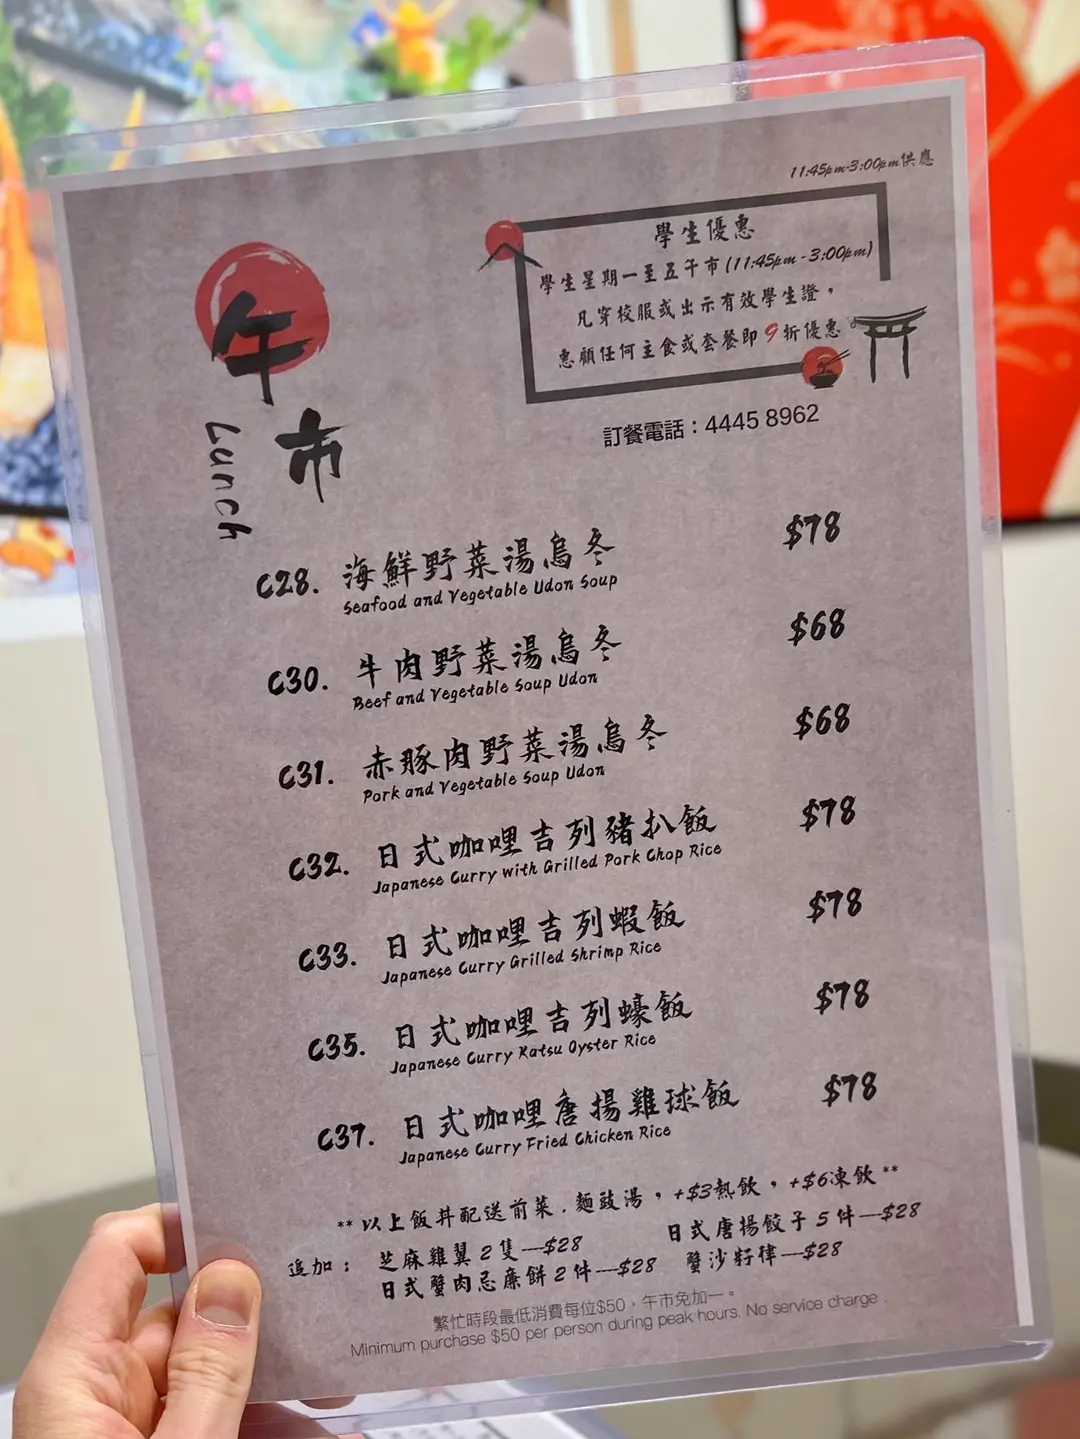 11:45pm-3:00pm供應
學生優惠
學生星期一至五午市(11:45pm-3:00pm)
凡穿校服或出示有效學生證，
惠顧任何主食或套餐即9折優惠
午市
Lunch
訂餐電話：4445 8962
C28. 海鮮野菜湯烏冬 $78
Seafood and Vegetable Udon Soup
C30. 牛肉野菜湯烏冬 $68
Beef and Vegetable Soup Udon
C31. 赤豚肉野菜湯烏冬 $68
Pork and Vegetable Soup Udon
C32. 日式咖哩吉列豬扒飯 $78
Japanese Curry with Grilled Pork Chop Rice
C33. 日式咖哩吉列蝦飯 $78
Japanese Curry Grilled Shrimp Rice
C35. 日式咖哩吉列蠔飯 $78
Japanese Curry Katsu Oyster Rice
C37. 日式咖哩唐揚雞球飯 $78
Japanese Curry Fried Chicken Rice
**以上飯丼配送前菜.麵豉湯，+$3熱飲，+$6凍飲**
追加： 芝麻雞翼2隻—$28 日式唐揚餃子5件—$28
日式蟹肉忌廉餅2件—$28 蟹沙籽律—$28
繁忙時段最低消費每位$50，午市免加一。
Minimum purchase $50 per person during peak hours. No service charge.